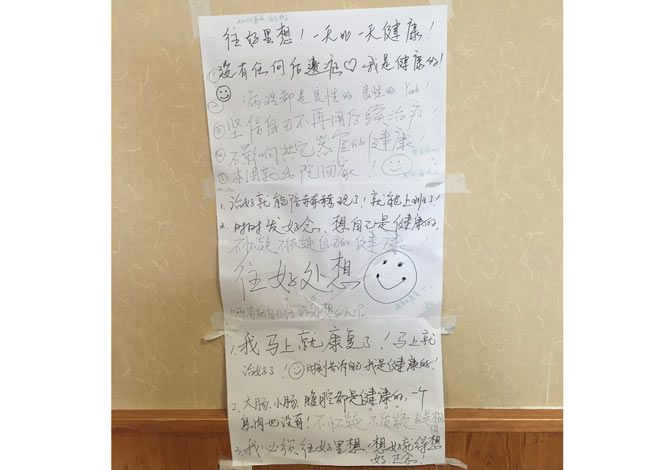 往好里想！一天比一天健康！
①没有任何后遗症♡我是健康的！
②病理都是良性的，良性的 Yeah！
③坚信自己不再用后续治疗！
④不影响其它器官的健康！
⑤本周就出院回家！
1.治好就能陪赫赫玩了！就能上班了！
2.时时发好念，想自己是健康的，
不怀疑不质疑自己的健康！
往好处想
1.我马上就康复了！马上就
治好了！时刻告诉自己我是健康的！
2.大肠、小肠、腹腔都是健康的，一个
息肉也没有！不怀疑 不质疑
3.我必须往好里想！想好就得想
好 正念！